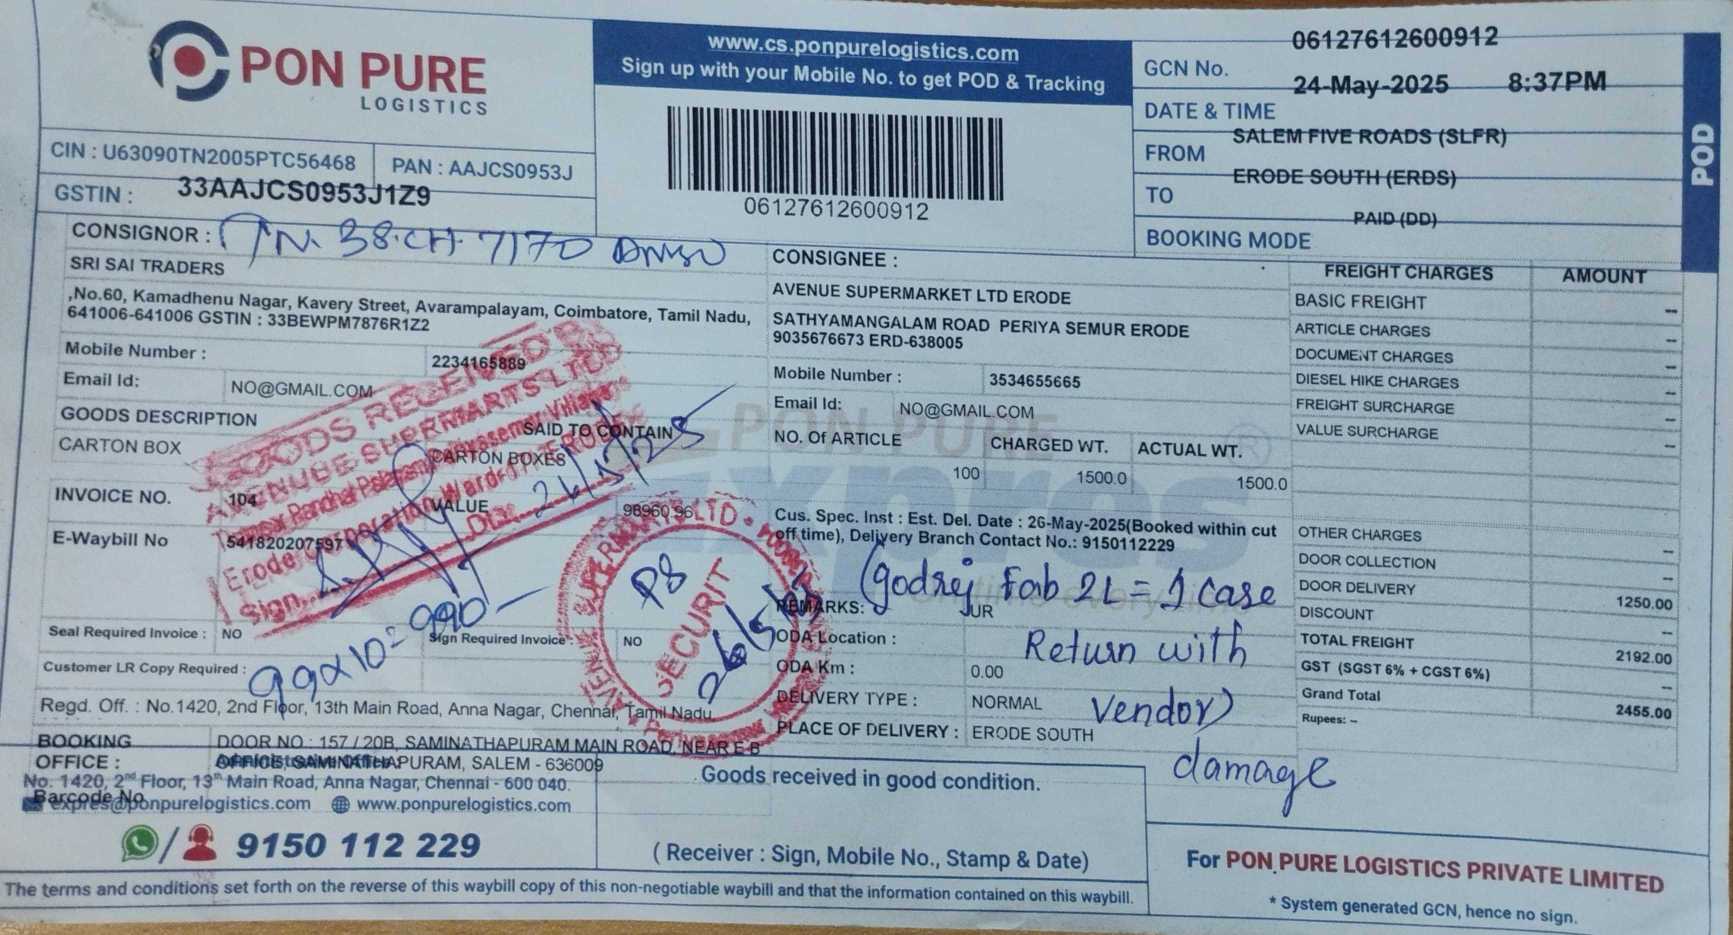 PON PURE
LOGISTICS
CIN : U63090TN2005PTC56468
PAN : AAJCS0953J
GSTIN : 33AAJCS0953J1Z9
www.cs.ponpurelogistics.com
Sign up with your Mobile No. to get POD & Tracking
06127612600912
GCN No. 06127612600912
DATE & TIME 24-May-2025 8:37PM
FROM SALEM FIVE ROADS (SLFR)
TO ERODE SOUTH (ERDS)
BOOKING MODE PAID (DD)
POD
CONSIGNOR : TN. 38.CH. 7170
SRI SAI TRADERS
,No.60, Kamadhenu Nagar, Kavery Street, Avarampalayam, Coimbatore, Tamil Nadu,
641006-641006 GSTIN : 33BEWPM7876R1Z2
Mobile Number : 2234165889
Email Id: NO@GMAIL.COM
GOODS DESCRIPTION SAID TO CONTAIN
CARTON BOX CARTON BOXES
INVOICE NO. 104 VALUE 98960.96
E-Waybill No 541820207597
GOODS RECEIVED
AVENUE SUPERMARTS LTD
Erode Corporation Ward
Sign. Dt: 26/5/25
99x10=990
Seal Required Invoice : NO Sign Required Invoice : NO
Customer LR Copy Required :
Regd. Off. : No.1420, 2nd Floor, 13th Main Road, Anna Nagar, Chennai, Tamil Nadu
CONSIGNEE :
AVENUE SUPERMARKET LTD ERODE
SATHYAMANGALAM ROAD PERIYA SEMUR ERODE
9035676673 ERD-638005
Mobile Number : 3534655665
Email Id: NO@GMAIL.COM
NO. Of ARTICLE CHARGED WT. ACTUAL WT.
100 1500.0 1500.0
PON PURE
expres
Cus. Spec. Inst : Est. Del. Date : 26-May-2025(Booked within cut
off time), Delivery Branch Contact No.: 9150112229
REMARKS: UR
(godrej Fab 2L = 1 Case
Return with
Vendor)
damage
ODA Location :
ODA Km : 0.00
DELIVERY TYPE : NORMAL
PLACE OF DELIVERY : ERODE SOUTH
AVENUE SUPERMARTS LTD
P8
SECURIT
26/5/25
FREIGHT CHARGES AMOUNT
BASIC FREIGHT --
ARTICLE CHARGES --
DOCUMENT CHARGES --
DIESEL HIKE CHARGES --
FREIGHT SURCHARGE --
VALUE SURCHARGE --
OTHER CHARGES --
DOOR COLLECTION --
DOOR DELIVERY 1250.00
DISCOUNT --
TOTAL FREIGHT 2192.00
GST (SGST 6% + CGST 6%) --
Grand Total 2455.00
Rupees: –
BOOKING OFFICE : DOOR NO : 157 / 20B, SAMINATHAPURAM MAIN ROAD, NEAR E B
OFFICE, SAMINATHAPURAM, SALEM - 636009
Administrative Office:
No. 1420, 2nd Floor, 13th Main Road, Anna Nagar, Chennai - 600 040.
Barcode No
expres@ponpurelogistics.com www.ponpurelogistics.com
/ 9150 112 229
Goods received in good condition.
( Receiver : Sign, Mobile No., Stamp & Date)
For PON PURE LOGISTICS PRIVATE LIMITED
* System generated GCN, hence no sign.
The terms and conditions set forth on the reverse of this waybill copy of this non-negotiable waybill and that the information contained on this waybill.